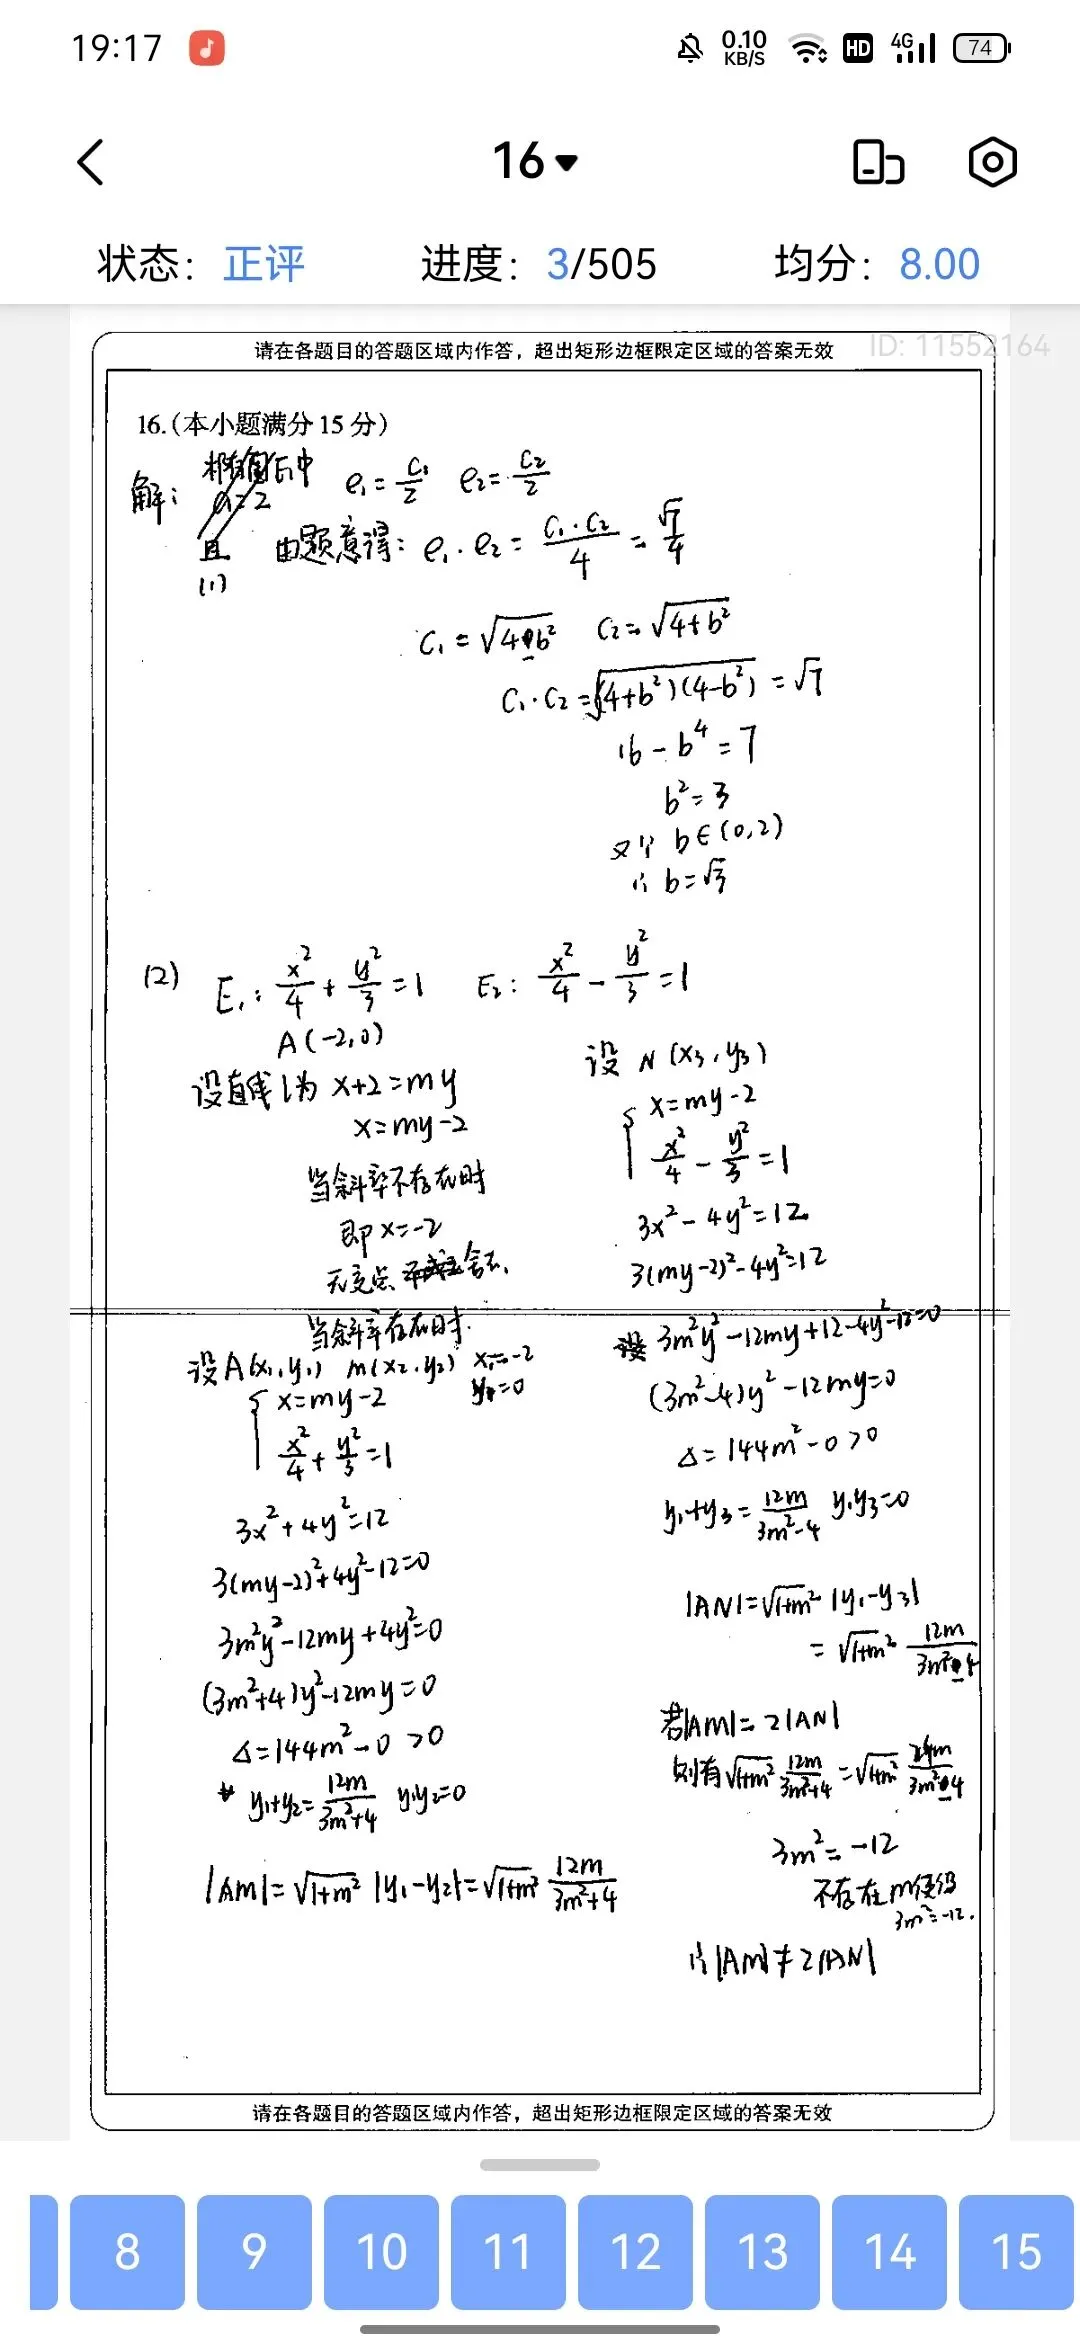 19:17
0.10
KB/S
HD
4G
74
16
状态：正评
进度：3/505
均分：8.00
请在各题目的答题区域内作答，超出矩形边框限定区域的答案无效
ID: 11552164
16.(本小题满分15分)
解：
a=2
e₁=c₁/2 e₂=c₂/2
且 由题意得：e₁·e₂=c₁·c₂/4=√7/4
(1)
c₁=√(4-b²) c₂=√(4+b²)
c₁·c₂=√((4+b²)(4-b²))=√7
16-b⁴=7
b²=3
又∵ b∈(0,2)
∴ b=√3
(2) E₁: x²/4+y²/3=1 E₂: x²/4-y²/3=1
A(-2,0)
设直线l为 x+2=my
x=my-2
当斜率不存在时
即x=-2
无交点 舍去.
当斜率存在时.
设A(x₁,y₁) M(x₂,y₂) x₁=-2
y₁=0
{x=my-2
x²/4+y²/3=1
3x²+4y²=12
3(my-2)²+4y²-12=0
3m²y²-12my+4y²=0
(3m²+4)y²-12my=0
Δ=144m²-0>0
y₁+y₂=12m/(3m²+4) y₁y₂=0
|AM|=√(1+m²) |y₁-y₂|=√(1+m²) 12m/(3m²+4)
设 N(x₃,y₃)
{x=my-2
x²/4-y²/3=1
3x²-4y²=12
3(my-2)²-4y²=12
3m²y²-12my+12-4y²-12=0
(3m²-4)y²-12my=0
Δ=144m²-0>0
y₁+y₃=12m/(3m²-4) y₁y₃=0
|AN|=√(1+m²) |y₁-y₃|
=√(1+m²) 12m/(3m²-4)
若|AM|=2|AN|
则有√(1+m²) 12m/(3m²+4)=√(1+m²) 24m/(3m²-4)
3m²=-12
不存在m使得
3m²=-12.
∴|AM|≠2|AN|
请在各题目的答题区域内作答，超出矩形边框限定区域的答案无效
8
9
10
11
12
13
14
15